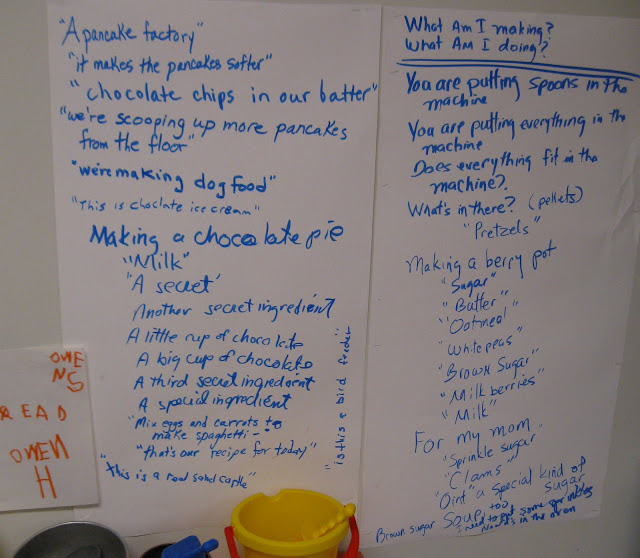 "A pancake factory"
"it makes the pancakes softer"
"chocolate chips in our batter"
"we're scooping up more pancakes
from the floor"
"we're making dog food"
"This is choclate ice cream"
Making a chocolate pie
"Milk"
"A secret"
Another secret ingredient
A little cup of chocolate
A big cup of chocolate
A third secret ingredient
A special ingredient
"Mix eggs and carrots to
make spaghetti-
"that's our recipe for today"
"this is a real sand castle"
"is this a bird feeder"
What Am I making?
What Am I doing?
You are putting spoons in the
machine
You are putting everything in the
machine
Does everything fit in the
machine?
What's in there? (pellets)
"Pretzels"
Making a berry pot
"Sugar"
"Butter"
"Oatmeal"
"White peas"
"Brown Sugar"
"Milk berries"
"Milk"
For my mom
"Sprinkle sugar"
"Clams"
"Dirt" a special kind of
sugar
Soup, too
Brown sugar
I need to put some sprinkles
Now it's in the oven
OWE
NS
READ
OWEN
H